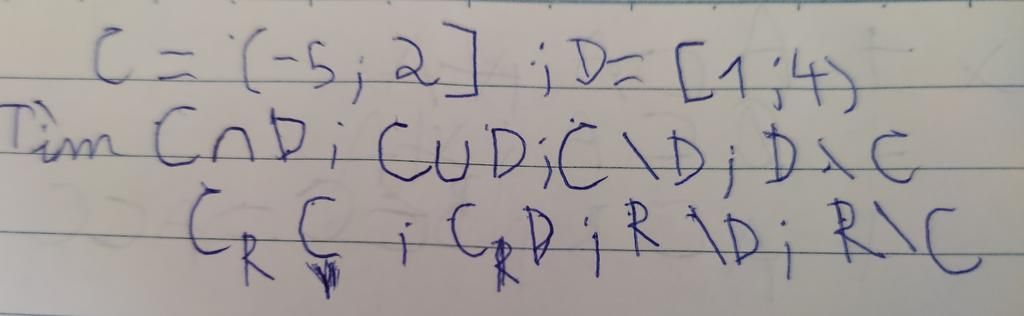 C = (-5; 2] ; D = [1; 4)
Tìm C∩D; C∪D; C\D; D\C
C_R C ; C_R D ; R\D; R\C